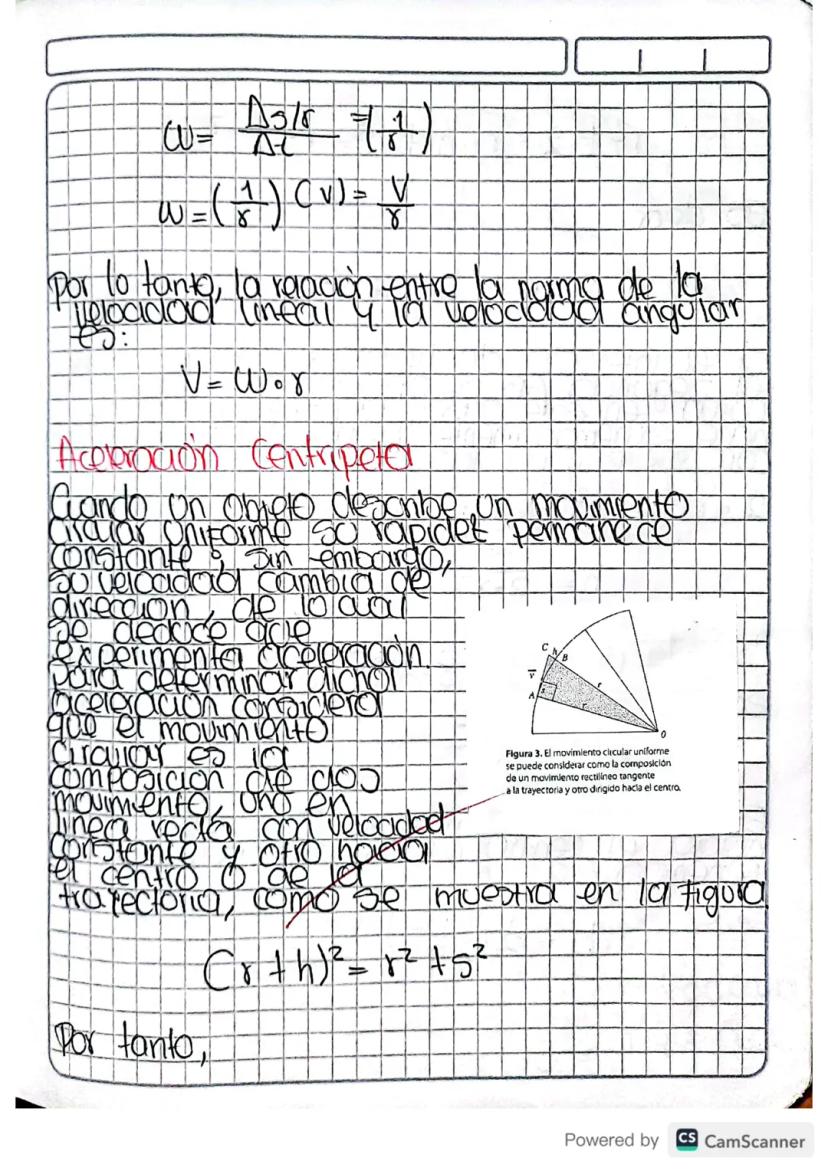 ω = Δs/r / Δt = (1/r)
ω = (1/r) (v) = V/r
Por lo tanto, la relación entre la norma de la
velocidad lineal y la velocidad angular
es:
V = ω · r
Aceleración Centripeta
Cuando un objeto describe un movimiento
circular uniforme su rapidez permanece
constante, sin embargo,
su velocidad cambia de
dirección, de lo cual
se deduce que
experimenta aceleración.
para determinar dicha
aceleración considera
que el movimiento
circular es la
composición de dos
movimiento, uno en
linea recta con velocidad
constante y otro hacia
el centro o de la
trayectoria, como se muestra en la figura
C h B
v
A s
r
r
O
Figura 3. El movimiento circular uniforme
se puede considerar como la composición
de un movimiento rectilíneo tangente
a la trayectoria y otro dirigido hacia el centro.
(r + h)² = r² + s²
Por tanto,
Powered by CS CamScanner